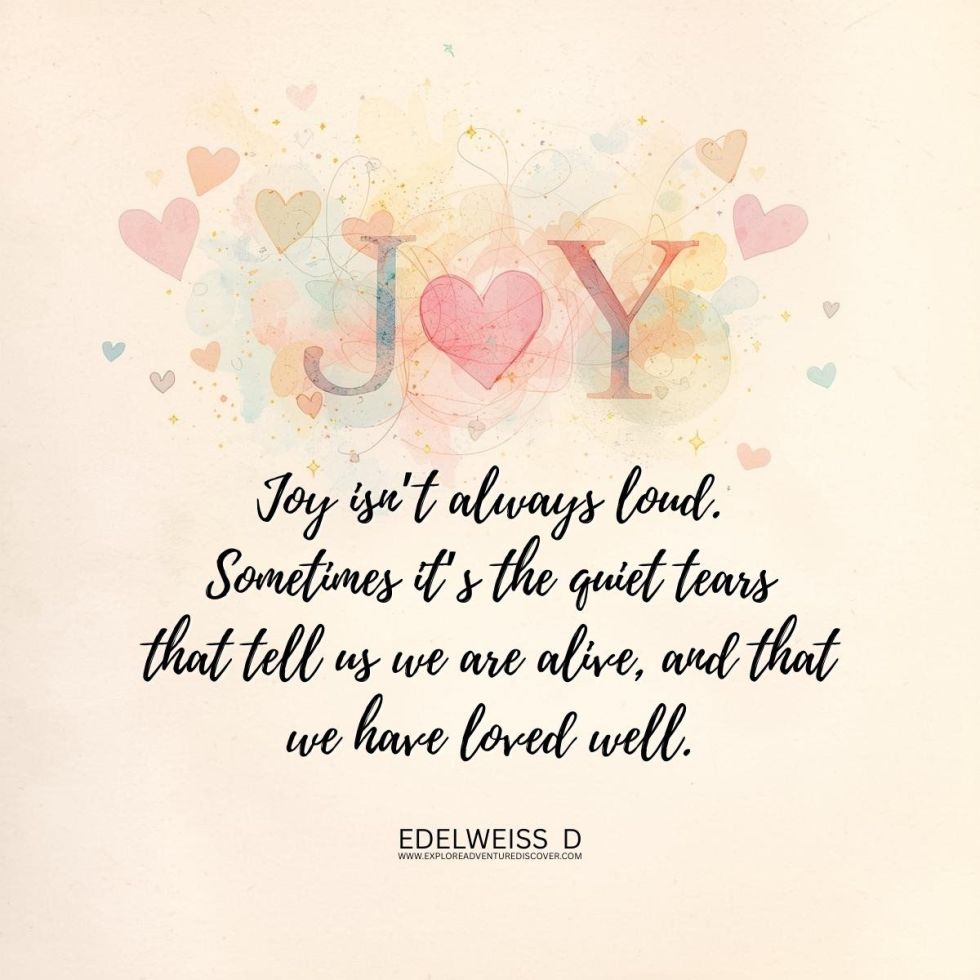 JOY
Joy isn't always loud.
Sometimes it's the quiet tears
that tell us we are alive, and that
we have loved well.
EDELWEISS D
WWW.EXPLOREADVENTUREDISCOVER.COM